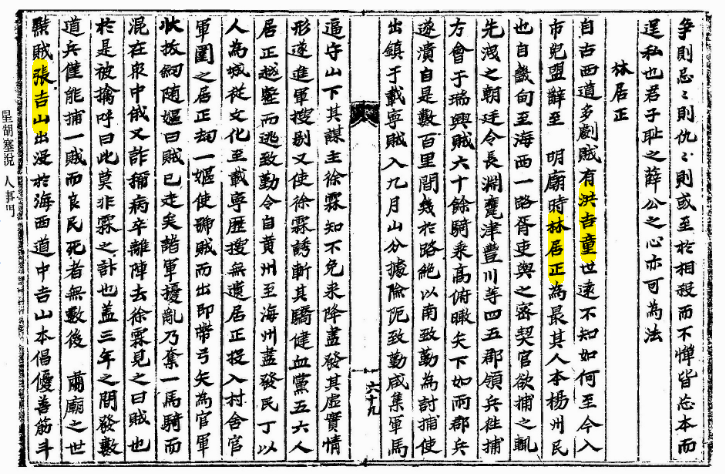 爭則忌〻則仇〻則或至於相殺而不憚皆忘本而
逞私也君子恥之薛公之心亦可為法
林居正
自古西道多劇賊有洪吉童世遠不知如何至今入
市兒盟辭至 明廟時林居正為最其人本楊州民
也自畿甸至海西一路胥吏與之密契官欲捕之輒
先洩之朝廷令長淵甕津豊川等四五郡領兵徃捕
方會于瑞興賊六十餘騎乘高俯瞰矢下如雨郡兵
遂潰自是數百里間幾於路絶以南致勤為討捕使
出鎮于載寧賊入九月山分據險阨致勤咸集軍馬
六十九
逼守山下其謀主徐霖知不免來降盡發其虛實情
形遂進軍搜剔又使徐霖誘斬其驕健血黨五六人
居正越壑而逃致勤令自黃州至海州盡發民丁以
人為城從文化至載寧歷搜無遺居正投入村舍官
軍圍之居正刼一嫗使號賊而出即帶弓矢為官軍
狀拔劒隨嫗曰賊已走矣諸軍擾亂乃奪一馬騎而
混在衆中俄又詐稱病卒離陣去徐霖見之曰賊也
於是被擒呼曰此莫非霖之計也盖三年之間發數
道兵僅能捕一賊而良民死者無數後 肅廟之世
黠賊張吉山出沒於海西道中吉山本倡優善筋斗
星湖僿說 人事門